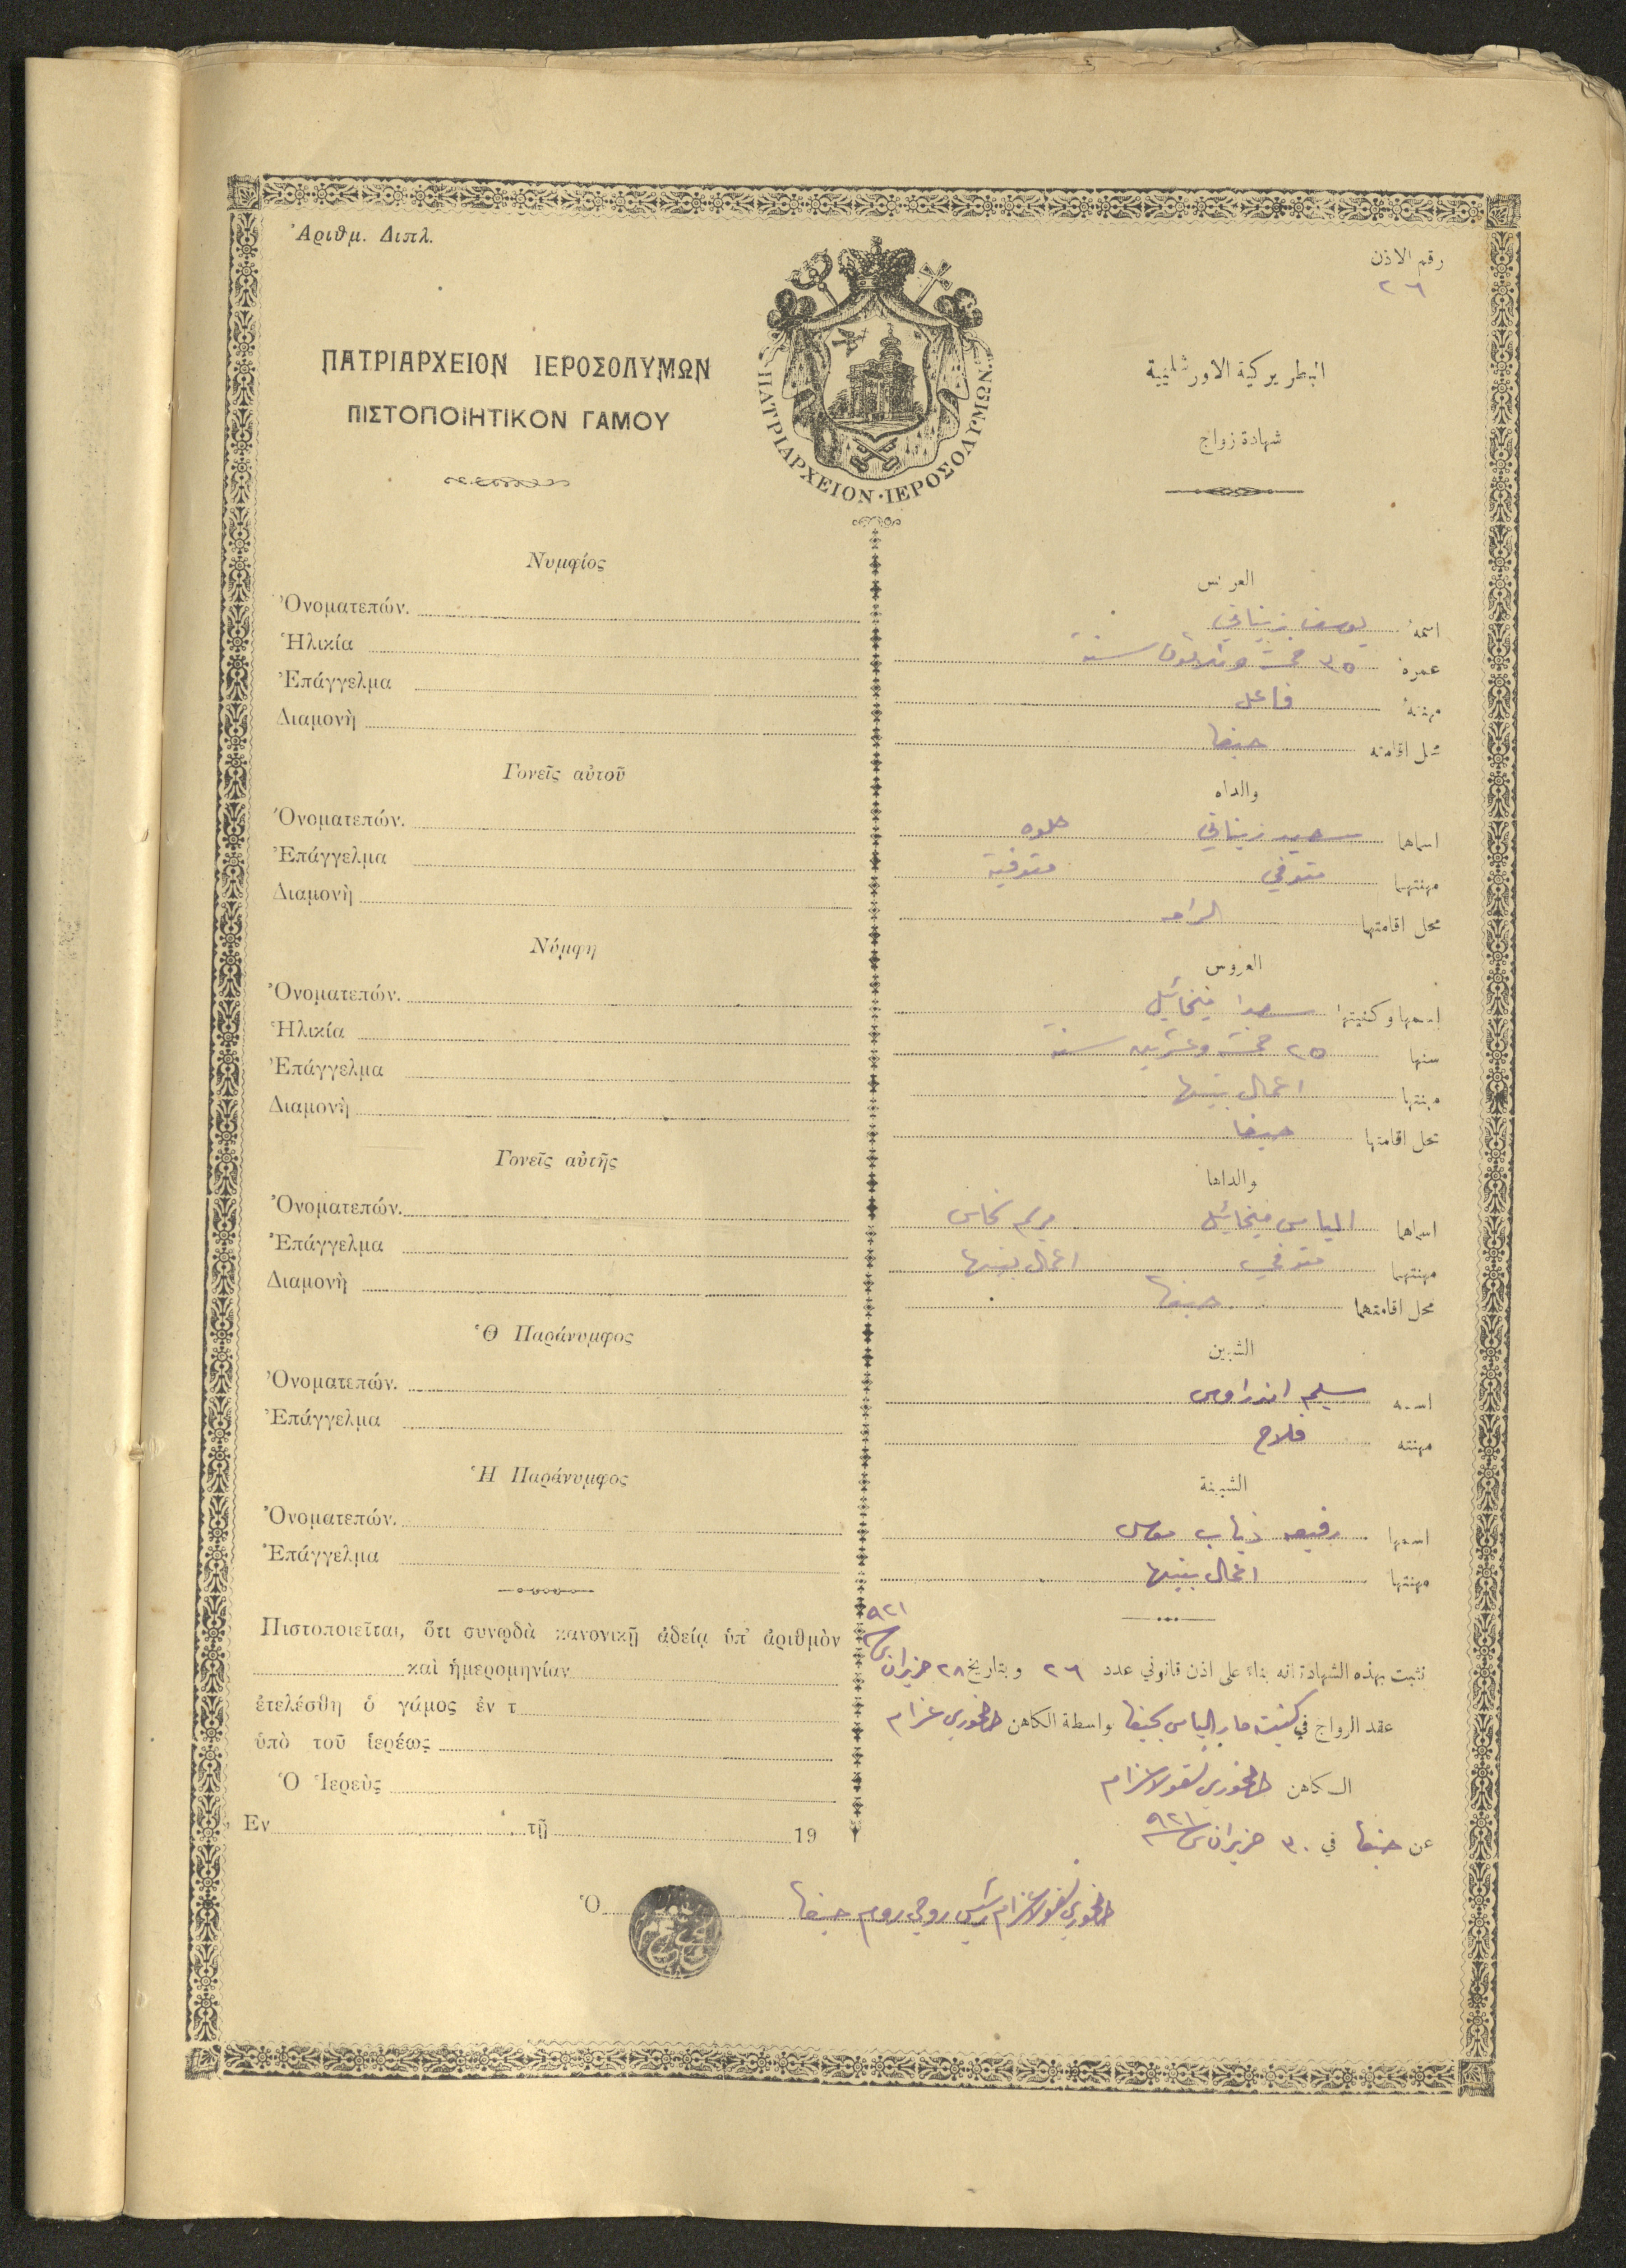 Ἀριθμ. Διπλ.
رقم الاذن
٢٦
ΠΑΤΡΙΑΡΧΕΙΟΝ ΙΕΡΟΣΟΛΥΜΩΝ
ΠΙΣΤΟΠΟΙΗΤΙΚΟΝ ΓΑΜΟΥ
ΠΑΤΡΙΑΡΧΕΙΟΝ · ΙΕΡΟΣΟΛΥΜΩΝ
البطريركية الاورشليمية
شهادة زواج
Νυμφίος
Ὀνοματεπών.
Ἡλικία
Ἐπάγγελμα
Διαμονὴ
Γονεῖς αὐτοῦ
Ὀνοματεπών.
Ἐπάγγελμα
Διαμονὴ
Νύμφη
Ὀνοματεπών.
Ἡλικία
Ἐπάγγελμα
Διαμονὴ
Γονεῖς αὐτῆς
Ὀνοματεπών.
Ἐπάγγελμα
Διαμονὴ
Ὁ Παράνυμφος
Ὀνοματεπών.
Ἐπάγγελμα
Ἡ Παράνυμφος
Ὀνοματεπών.
Ἐπάγγελμα
Πιστοποιεῖται, ὅτι συνῳδὰ κανονικῇ ἀδείᾳ ὑπ' ἀριθμὸν
καὶ ἡμερομηνίαν
ἐτελέσθη ὁ γάμος ἐν τ
ὑπὸ τοῦ ἱερέως
Ὁ Ἱερεὺς
Ἐν τῇ 19
العريس
اسمهُ يوسف زيناتي
عمره ٣٥ خمسة وثلاثون سنة
مهنتهُ فاعل
محل اقامته حيفا
والداه
اسماهما سعيد زيناتي حلوه
مهنتهما متوفي متوفية
محل اقامتهما الرامه
العروس
اسمها وكنيتها سعدا ميخائيل
سنها ٢٥ خمسة وعشرين سنة
مهنتها اعمال بيتها
محل اقامتها حيفا
والداها
اسماهما الياس ميخائيل مريم نحاس
مهنتهما متوفي اعمال بيتها
محل اقامتهما حيفا
الشبين
اسمه سليم اندراوس
مهنته فلاح
الشبينة
اسمها رفيعه ذياب موسى
مهنتها اعمال بيتها
نثبت بهذه الشهادة انه بناءً على اذن قانوني عدد ٢٦ وبتاريخ ٢٨ حزيران سنة ٩٢١
عقد الزواج في كنيسة مار الياس بحيفا بواسطة الكاهن الخوري عزام
الكاهن الخوري نقولا عزام
عن حيفا في ٣٠ حزيران سنة ٩٢١
Ὁ الخوري نقولا عزام رئيس روحي روم حيفا